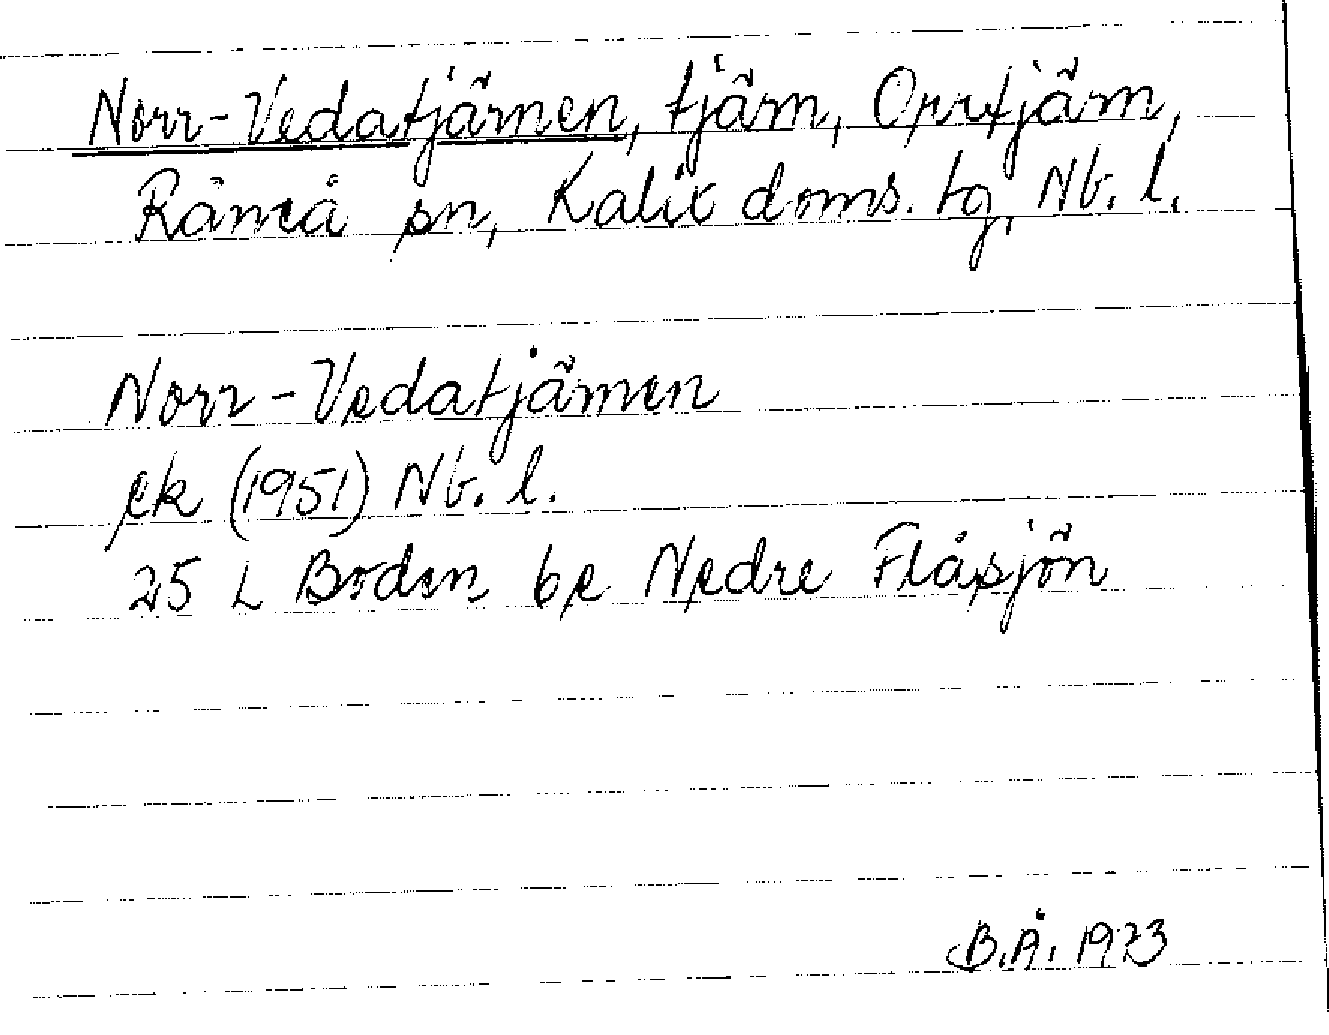 Norr-Vedatjärnen, tjärn, Orrtjärn,
Råneå sn, Kalix doms. tg, Nb. l.
Norr-Vedatjärnen
ek (1951) Nb. l.
25 L Boden be Nedre Flåsjön
B.Å. 1973